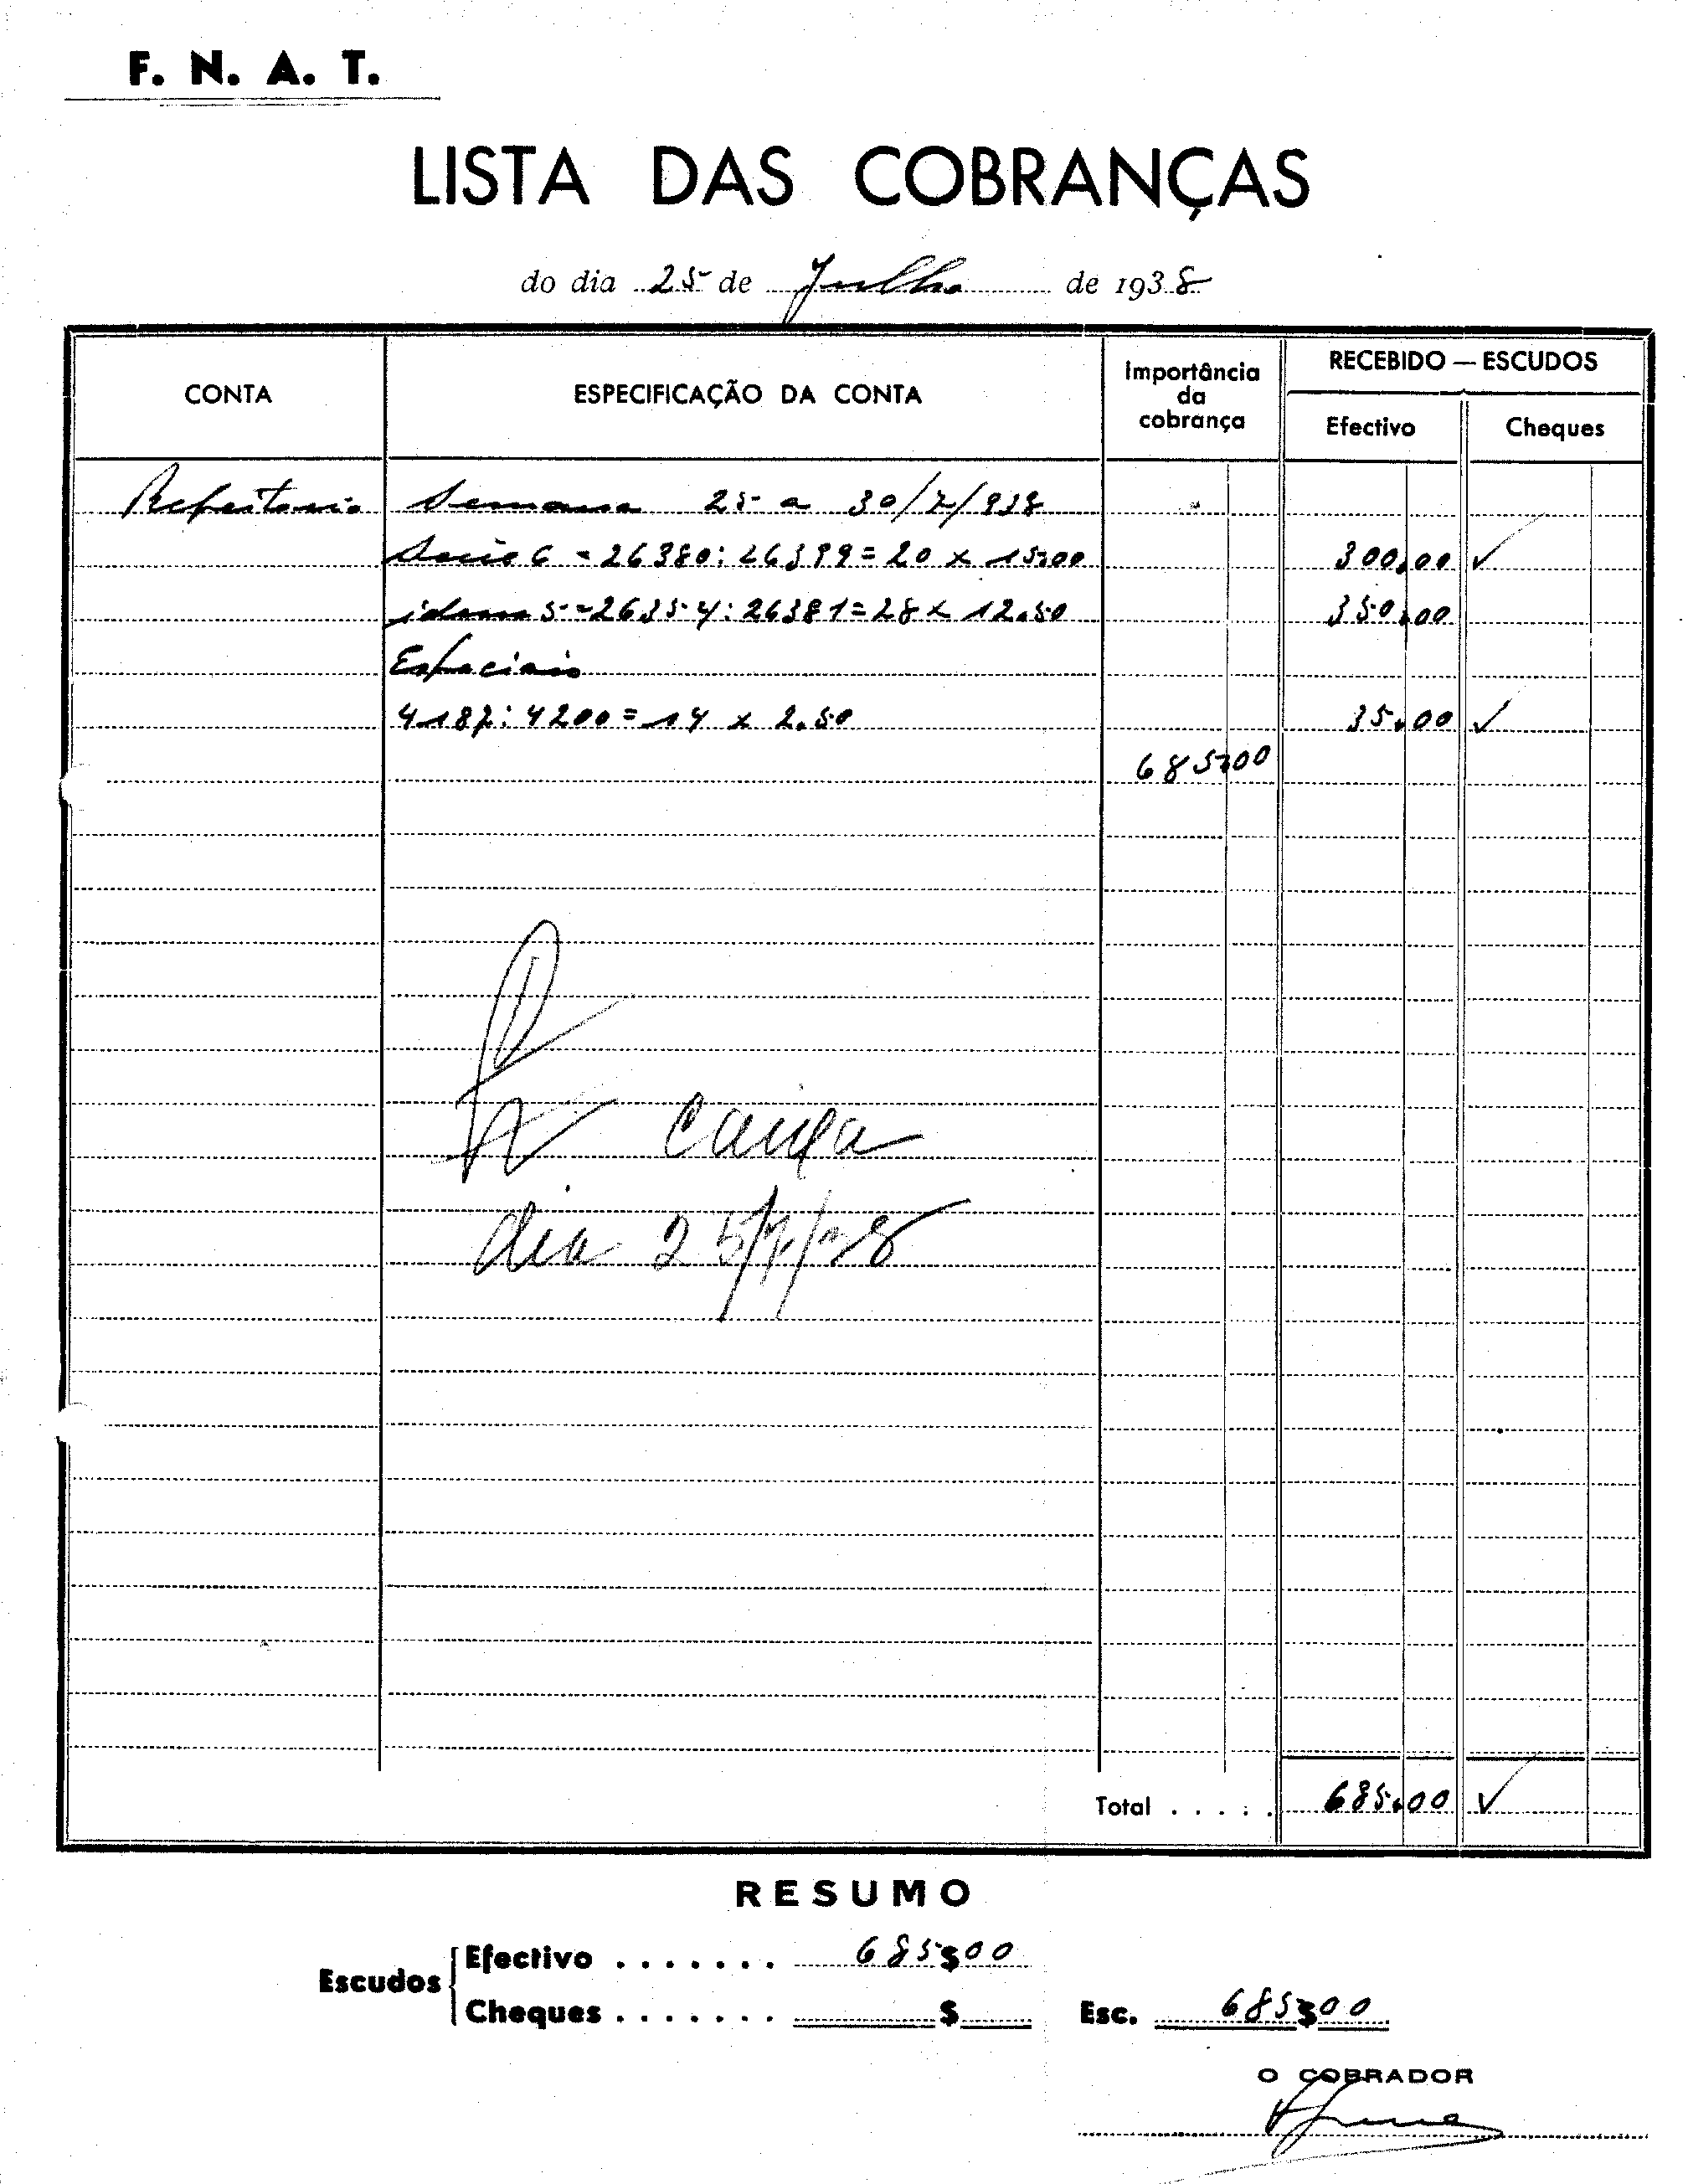 F. N. A. T.
LISTA DAS COBRANÇAS
do dia 25 de Julho de 1938
CONTA
ESPECIFICAÇÃO DA CONTA
Importância
da
cobrança
RECEBIDO — ESCUDOS
Efectivo
Cheques
Refeitorio Semana 25 a 30/7/938
Serie 6 = 26380:26399 = 20 x 15.00 300.00 ✓
idem 5 = 26354:26381 = 28 x 12.50 350.00
Especiais
4187:4200 = 14 x 2.50 35.00 ✓
685.00
caixa
dia 25/7/38
Total . . . . . 685.00 ✓
RESUMO
Escudos
Efectivo . . . . . . . 685$00
Cheques . . . . . . . $
Esc. 685$00
O COBRADOR